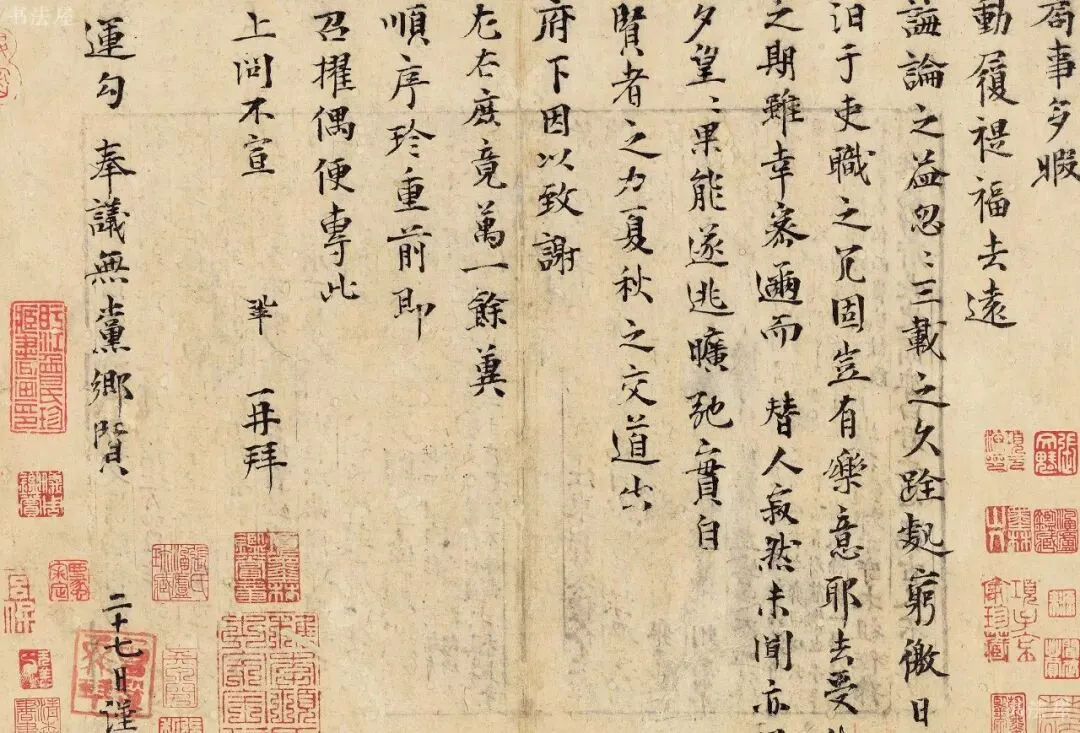 局事多暇
動履禔福去遠
誨論之益忽〻三載之久跧處窮徼日
汨于吏職之冗固豈有樂意耶去受
之期雖幸密邇而 替人寂然未聞亦
夕望〻果能遂逃曠弛實自
賢者之力夏秋之交道出
府下因以致謝
左右庶竟萬一餘冀
順序珍重前即
召擢偶便專此
上問不宣 鞏 再拜
運勾 奉議無黨鄉賢 二十七日謹
项子京
家珍藏
书法屋